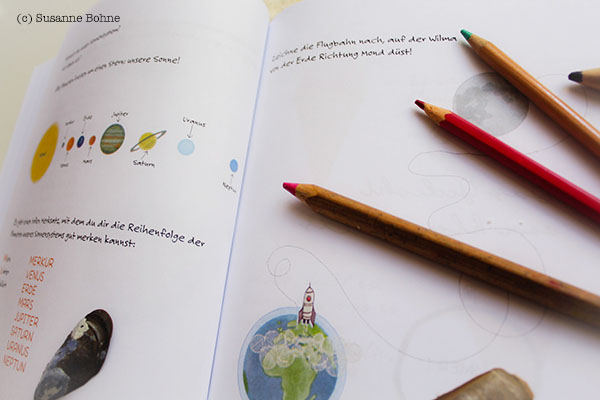 (c) Susanne Bohne
einen Stern: unsere Sonne!
Erde
Jupiter
Uranus
Mars
Saturn
Neptun
Es gibt einen tollen Merksatz, mit dem du dir die Reihenfolge der
Planeten unseres Sonnensystems gut merken kannst:
MERKUR
VENUS
ERDE
MARS
JUPITER
SATURN
URANUS
NEPTUN
Zeichne die Flugbahn nach, auf der Wilma
von der Erde Richtung Mond düst!